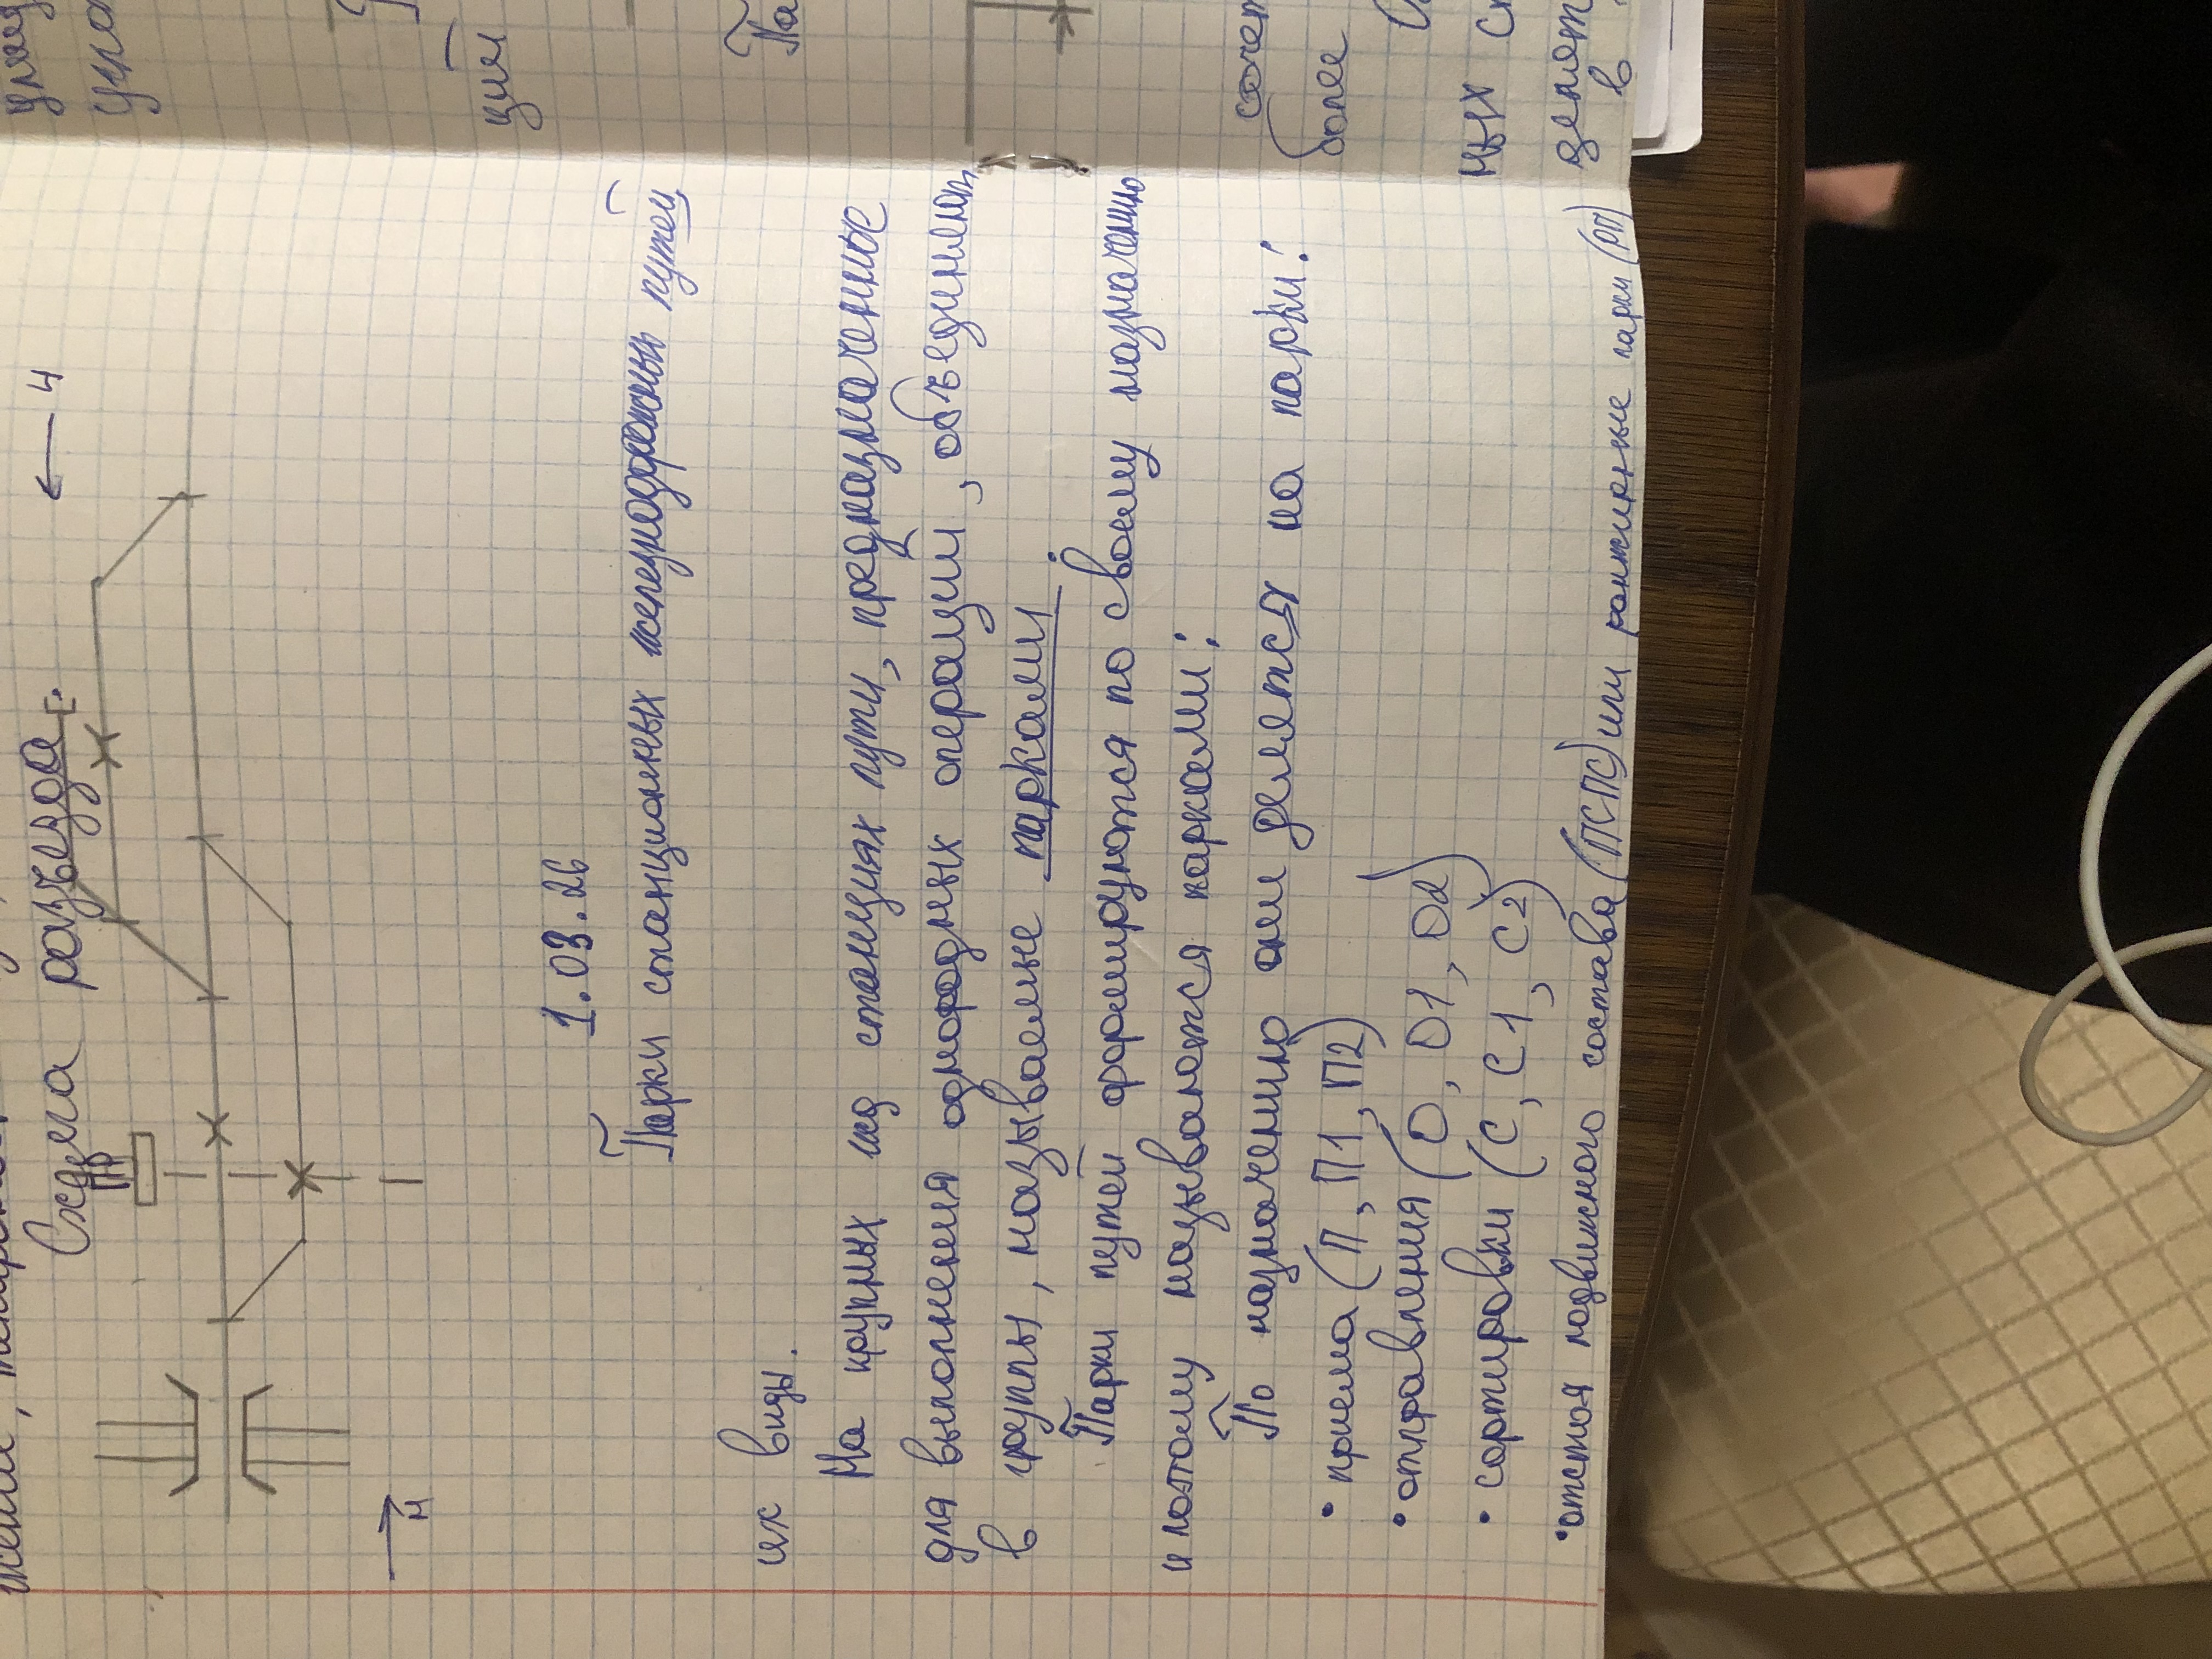 Схема разъезда
← Ч
ПР
→ Н
1.03.26
Парки станционных железнодорожных путей
их виды.
На крупных жд станциях пути, предназначенные
для выполнения однородных операций, объединяют
в группы, называемые парками.
Парки путей формируются по своему назначению
и потому называются парками:
По назначению они делятся на парки:
• приема (П, П1, П2)
• отправления (О, О1, О2)
• сортировки (С, С1, С2)
• отстоя подвижного состава (ПСПС) или ранжирные парки (РП)
ций
На
более
ных
делят
в